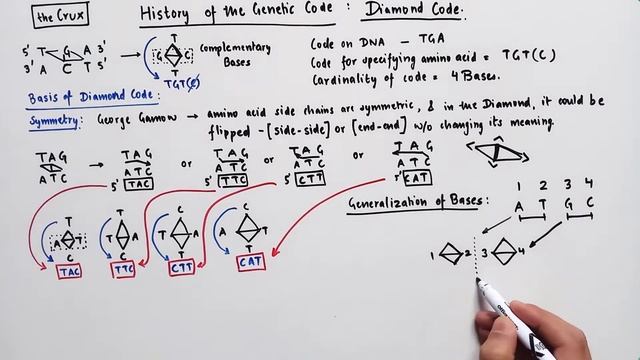 the Crux
History of the Genetic Code : Diamond Code.
5' T G A 3'
3' A C T 5'
T
G C
T
TGT(C)
Complementary
Bases
Code on DNA - TGA
Code for specifying amino acid = TGT(C)
Cardinality of code = 4 Bases.
Basis of Diamond Code:
Symmetry: George Gamow → amino acid side chains are symmetric, & in the Diamond, it could be
flipped -[side-side] or [end-end] w/o changing its meaning.
TAG → TAG or TAG or TAG or TAG
ATC ATC ATC ATC ATC
5' TAC 5' TTC 5' CTT 5' CAT
Generalization of Bases:
1 2 3 4
A T G C
T T C C
A T A T T A A T
C C T T
TAC TTC CTT CAT
1 2 3 4